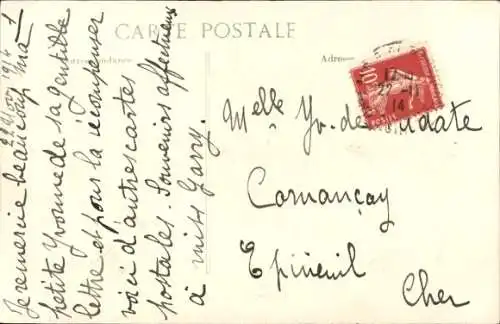 CARTE POSTALE
Correspondance
Adresse
22 Nov 1914
Je remercie beaucoup ma
petite Yvonne de sa gentille
lettre et pour la récompenser
voici d'autres cartes
postales. Souvenirs affectueux
à miss Garry.
10
22-11
14
Melle Yv. de
Comançay
Epineuil
Cher